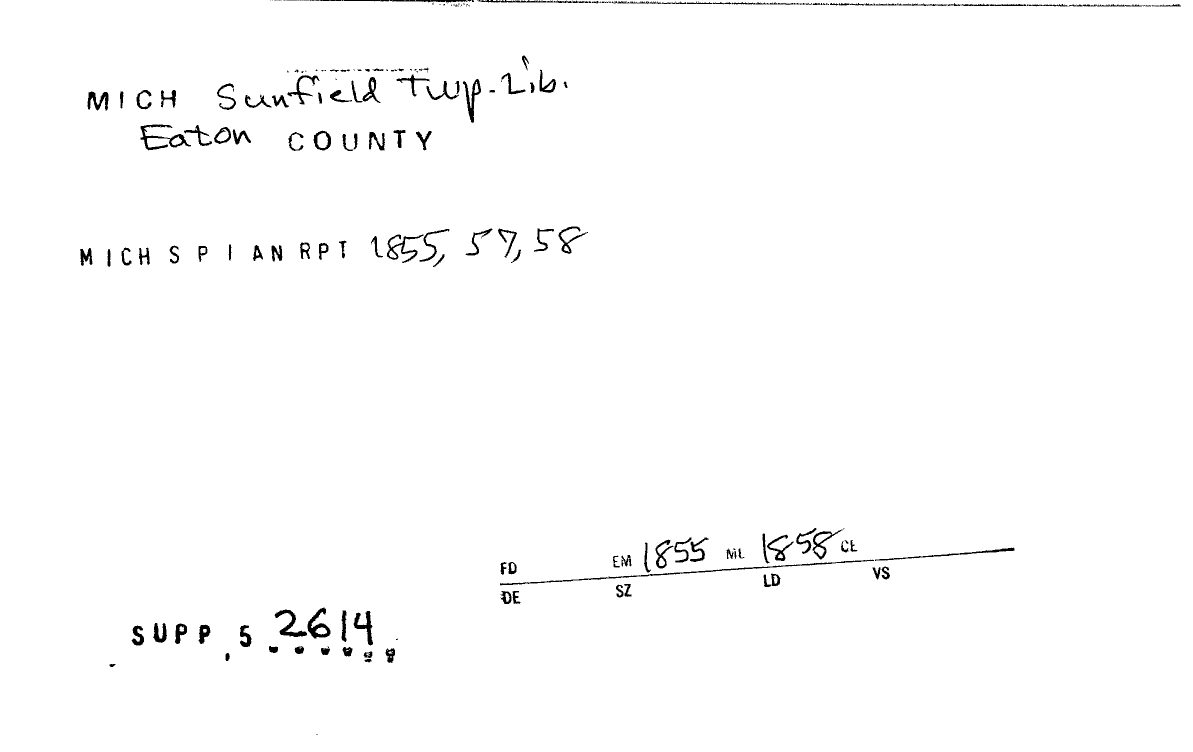 MICH Sunfield Twp. Lib.
Eaton COUNTY
MICH S P I AN RPT 1855, 57, 58
FD EM 1855 ML 1858 CE
DE SZ LD VS
SUPP, 5 2614